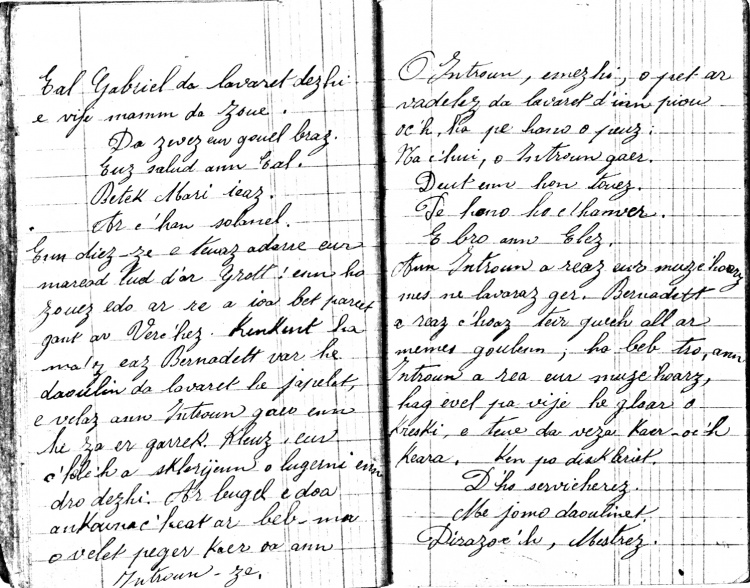 Eal Gabriel da lavaret dezhi
e vije mamm da Zoue.
Da zevez eur gouel braz.
Euz salud ann Eal.
Betek Mari ieaz.
Ar c'han solanel.
Eun diez-ze e teuaz adarre eur
maread tud d'ar Grott: enn ho
zouez edo ar re a ioa bet pareet
gant ar Verc'hez. Kenkent ha
ma'z eaz Bernadett var he
daoulin da lavaret he japelet,
e velaz ann Introun gaer enn
he za er garrek Kleuz, eur
c'hele'h a sklerijenn o lugerni enn
dro dezhi. Ar bugel e doa
ankounac'heat ar beb-ma
o velet peger kaer oa ann
Introun-ze.
O Introun, emezhi, o pet ar
vadelez da lavaret d'inn piou
oc'h, ha pe hano o peuz:
Na c'hui, o Introun gaer.
Deut enn hon touez.
Pe hano ho c'hanver.
E bro ann Elez.
Ann Introun a reaz eur muze hoarz
mes ne lavaraz ger. Bernadett
a reaz c'hoaz teir guech all ar
memes goulenn; ha beb tro, ann
Introun a rea eur muze hoarz,
hag evel pa vije he gloar o
kreski, e teue da veza kaer-oc'h
keara. Ken po disklêriet.
D'ho servicherez.
Me jomo daoulinet
Dirazoc'h, Mestrez.